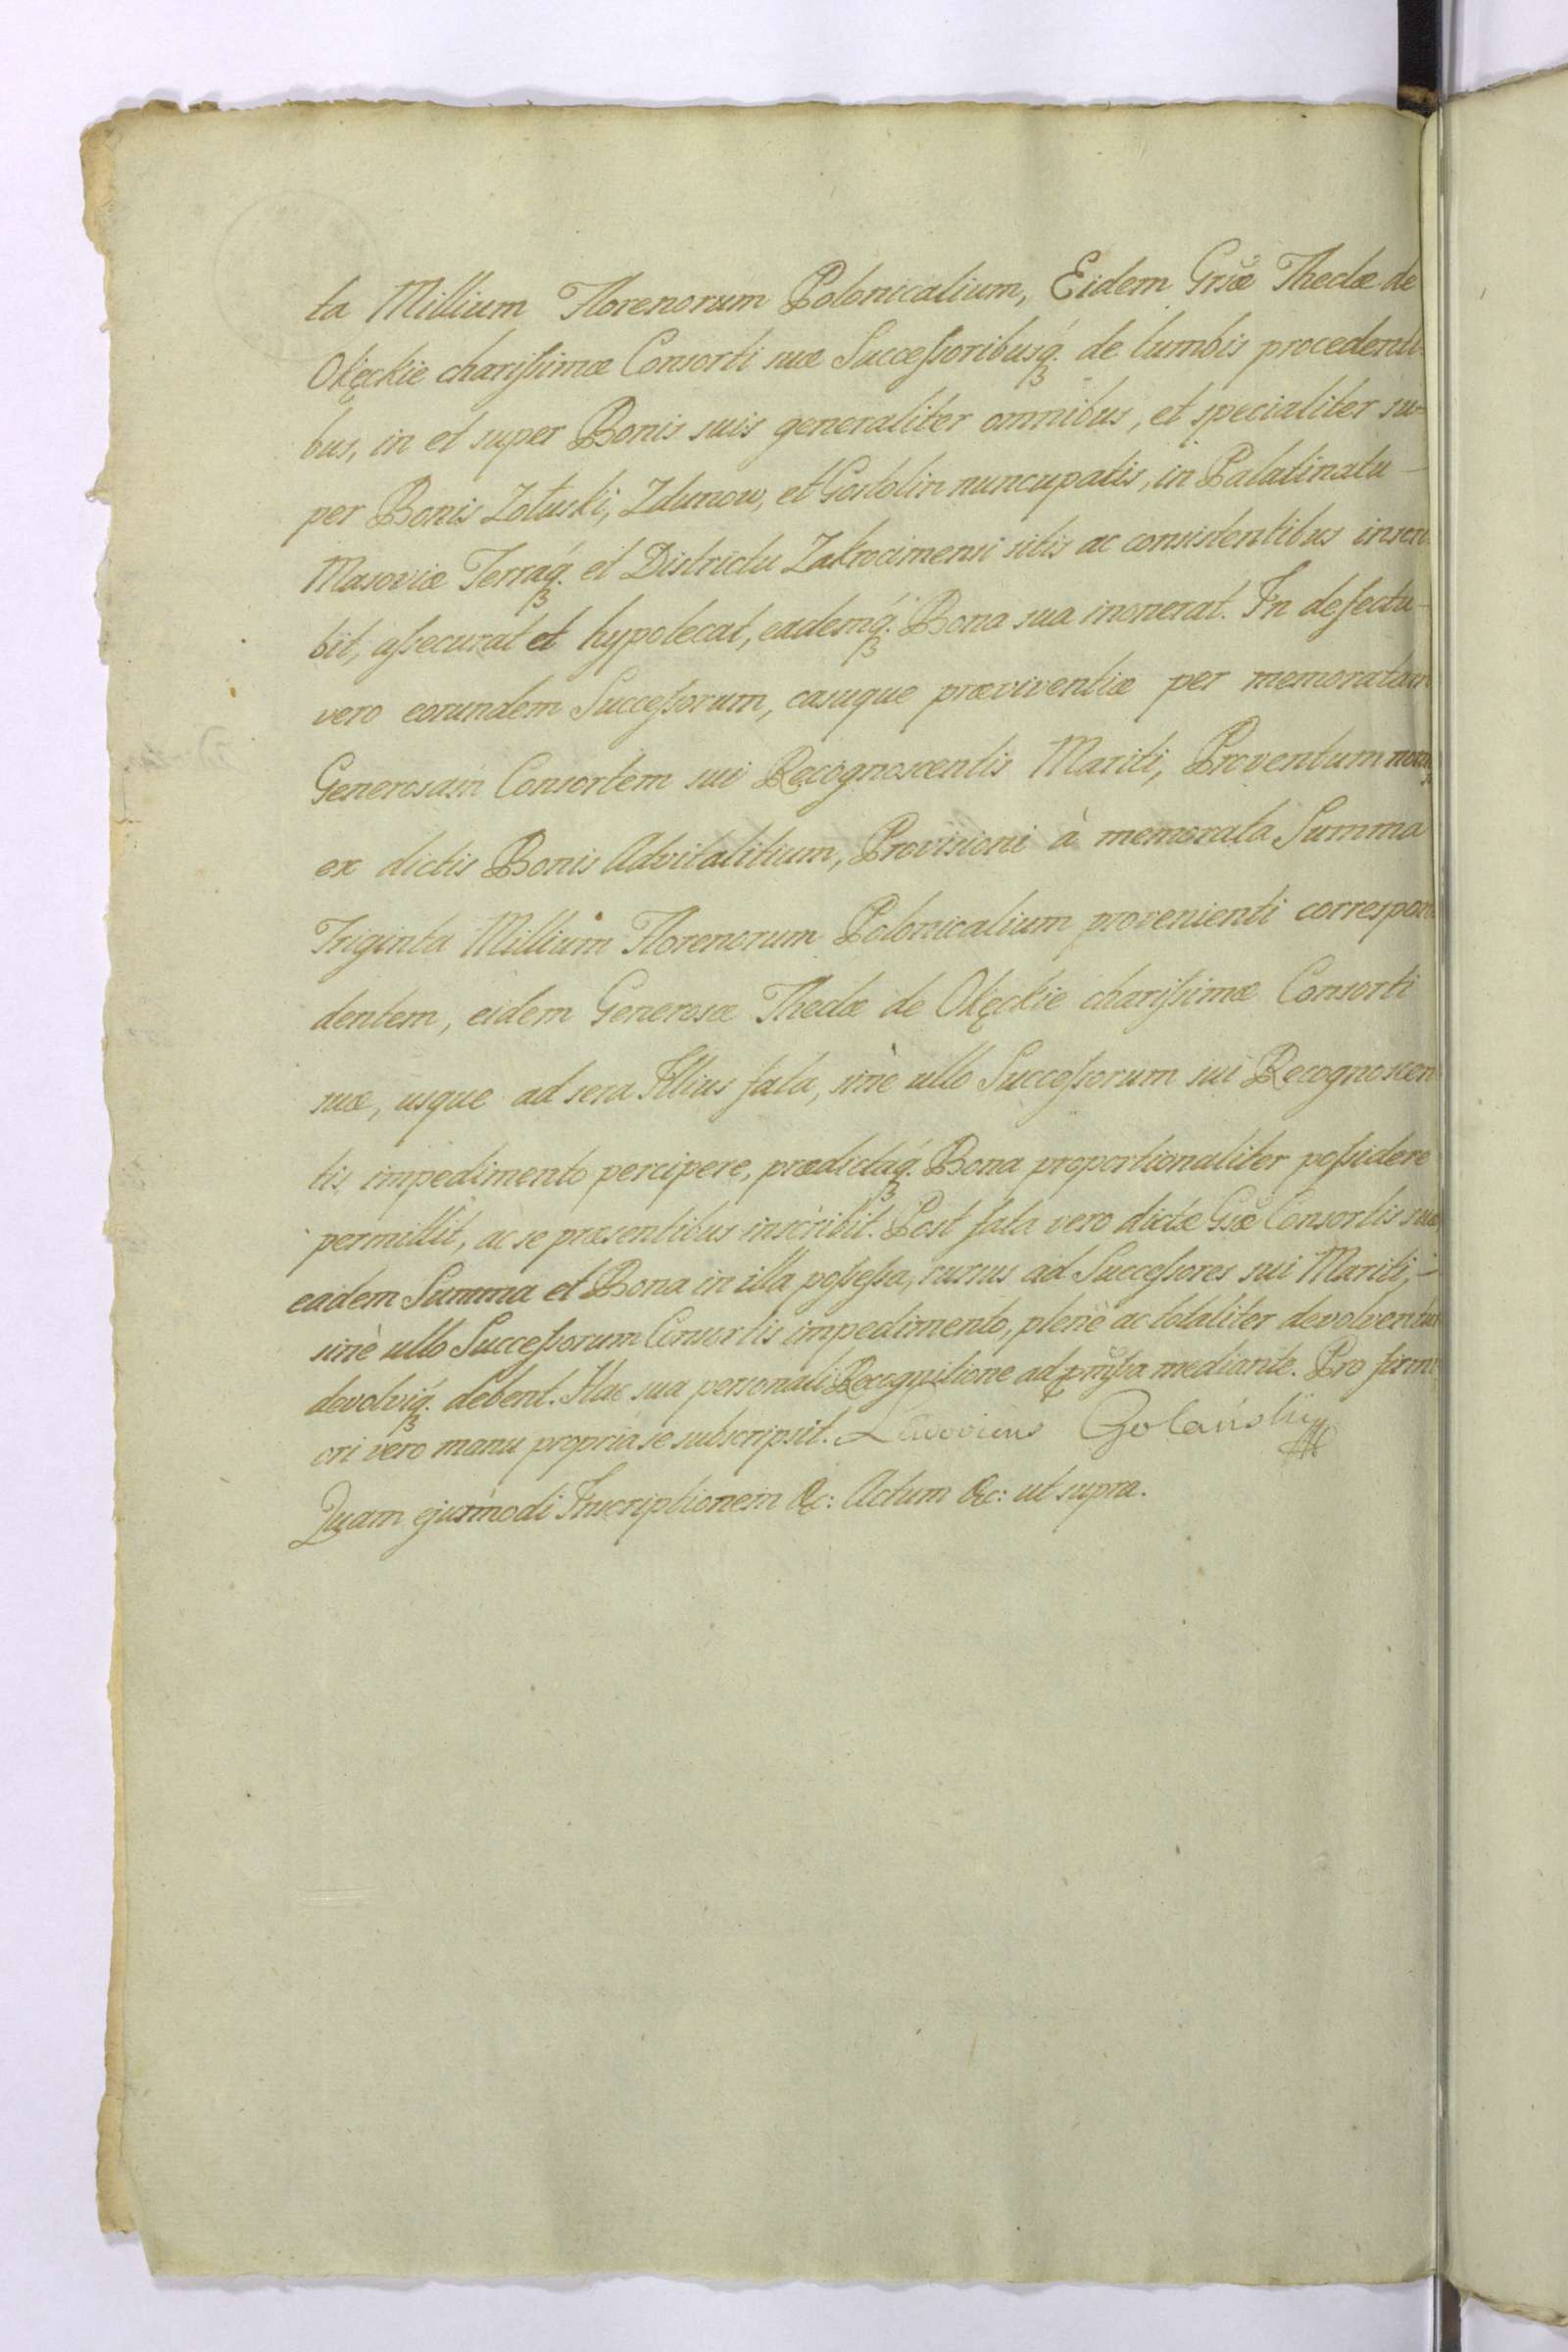 ta Millium Florenorum Polonicalium, Eidem Grsæ Theclæ de
Okęckie charissimæ Consorti suæ Successoribusq́ꝫ de lumbis procedenti-
bus, in et super Bonis suis generaliter omnibus, et specialiter su-
per Bonis Zołuski, Zdunow, et Gostolin nuncupatis, in Palatinatu -
Masoviæ Terráq́ꝫ et Districtu Zakrocimensi sitis ac consistentibus inscri-
bit, assecurat et hypotecat, eademq́ꝫ Bona sua inonerat. In defectu -
vero eorundem Successorum, casuque præviventiæ per memoratam
Generosam Consortem sui Recognoscentis Mariti, Proventum
ex dictis Bonis Advitalitium, Provisioni à memorata Summa
Triginta Millium Florenorum Polonicalium provenienti correspon-
dentem, eidem Generosæ Theclæ de Okęckie charissimæ Consorti
suæ, usque ad sera Illius fata, sinè ullo Successorum sui Recognoscen-
tis impedimento percipere, prædictáq́ꝫ Bona proportionaliter possidere
permittit, ac se præsentibus inscribit. Post fata vero dictæ Gsæ Consortis suæ
eadem Summa et Bona in illa possessa, rursus ad Successores sui Mariti, -
sinè ullo Successorum Consortis impedimento, plenè ac totaliter devolventur
devolviq́ꝫ debent. Hac sua personali Recognitione ad præssa mediante. Pro firmi-
ori vero manu propria se subscripsit. Ludovicus Golański
Quam ejusmodi Inscriptionem &c: Actum &c: ut supra.